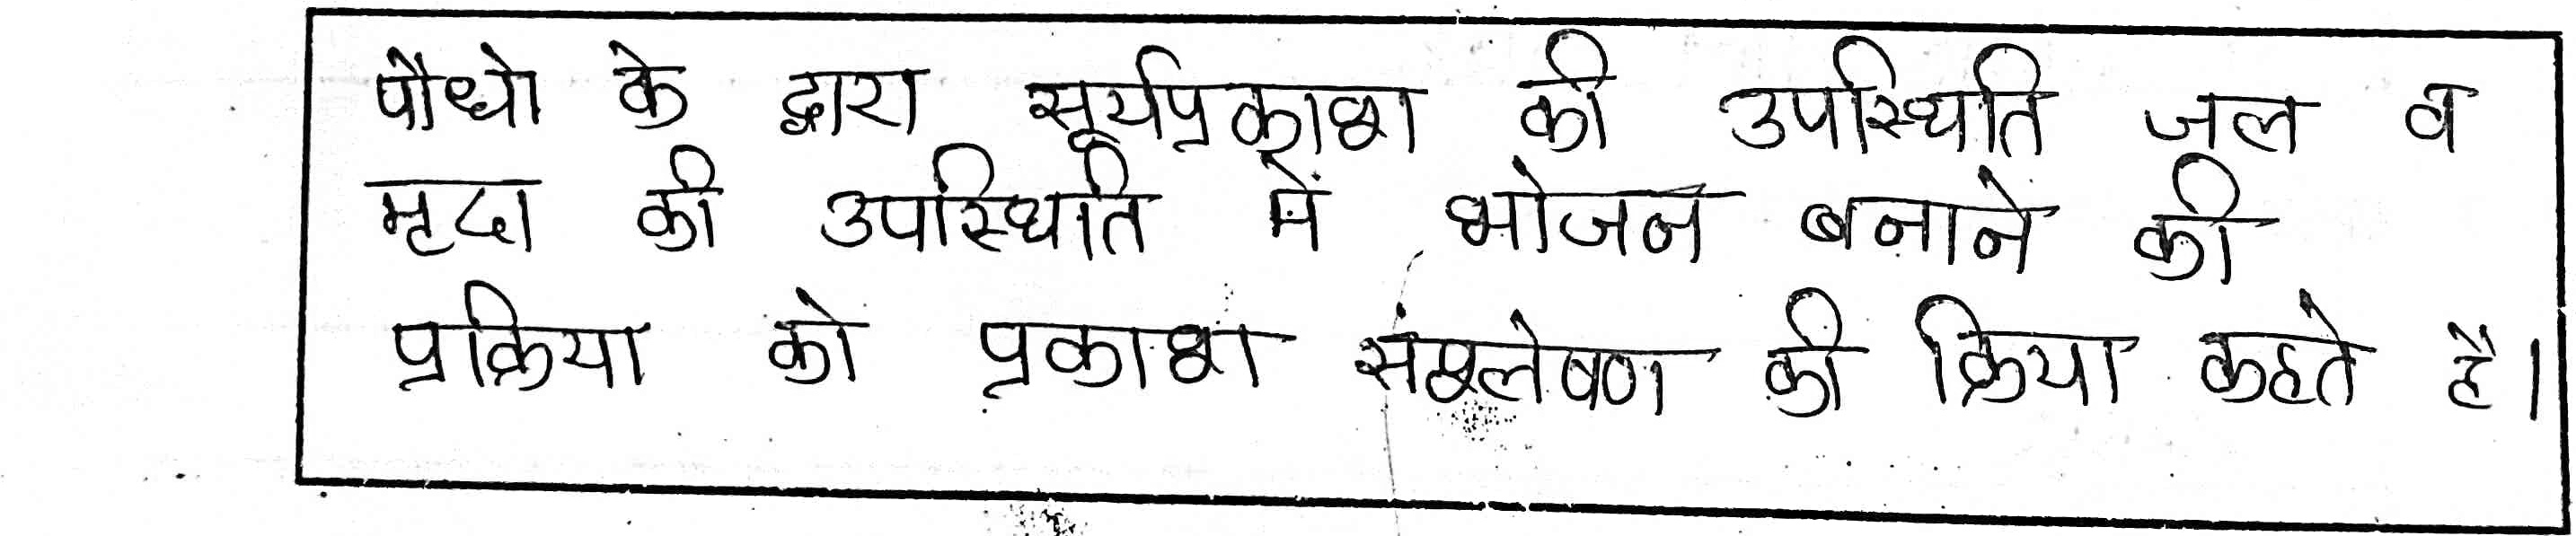 पौधो के द्वारा सूर्यप्रकाश की उपस्थिति जल व
मृदा की उपस्थिति में भोजन बनाने की
प्रक्रिया को प्रकाश संश्लेषण की क्रिया कहते है।